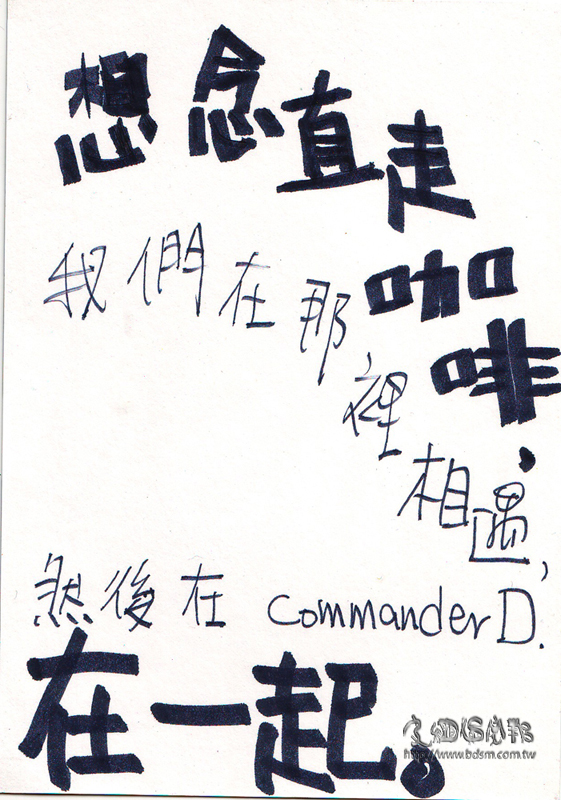 想念直走咖啡，
我們在那裡相遇，
然後在 Commander D.
在一起。
http://www.bdsm.com.tw